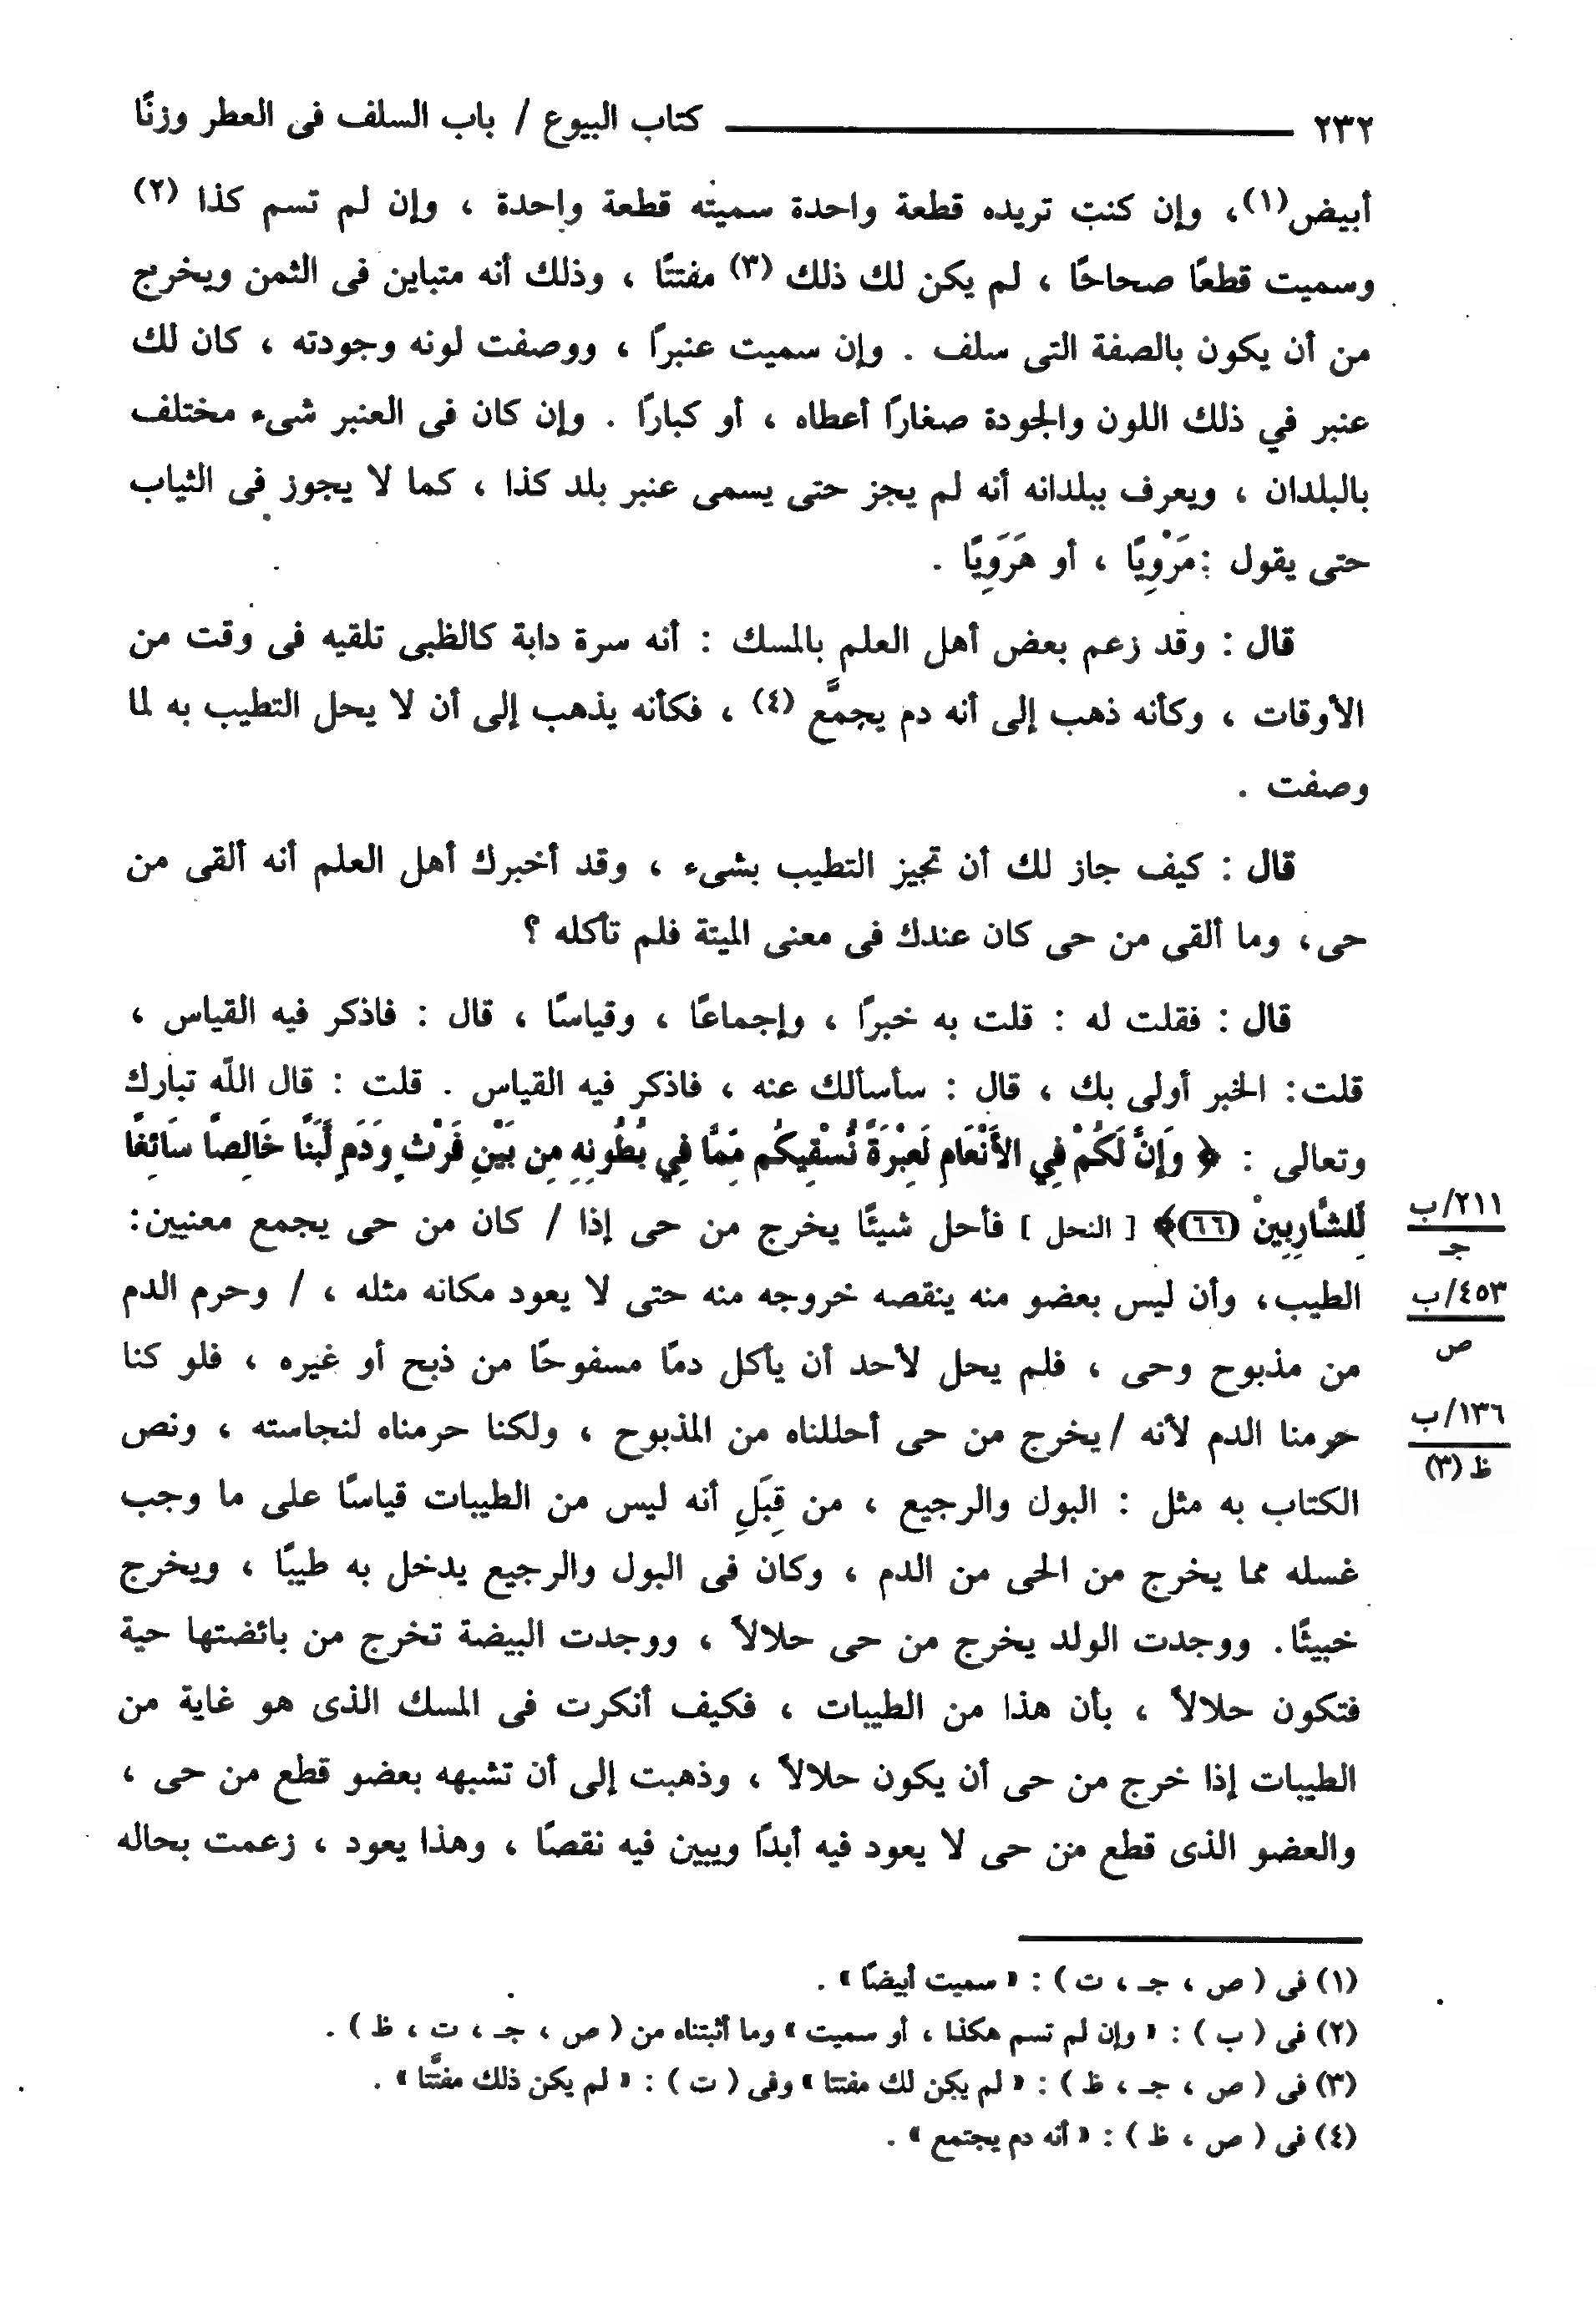 ٢٣٢ كتاب البيوع / باب السلف فى العطر وزنًا
أبيض(١)، وإن كنت تريده قطعة واحدة سميته قطعة واحدة ، وإن لم تسم كذا (٢)
وسميت قطعًا صحاحًا ، لم يكن لك ذلك (٣) مفتتًا ، وذلك أنه متباين فى الثمن ويخرج
من أن يكون بالصفة التى سلف . وإن سميت عنبرًا ، ووصفت لونه وجودته ، كان لك
عنبر في ذلك اللون والجودة صغارًا أعطاه ، أو كبارًا . وإن كان فى العنبر شىء مختلف
بالبلدان ، ويعرف ببلدانه أنه لم يجز حتى يسمى عنبر بلد كذا ، كما لا يجوز فى الثياب
حتى يقول :مَرْوِيًا ، أو هَرَوِيًا .
قال : وقد زعم بعض أهل العلم بالمسك : أنه سرة دابة كالظبى تلقيه فى وقت من
الأوقات ، وكأنه ذهب إلى أنه دم يجمَّع (٤) ، فكأنه يذهب إلى أن لا يحل التطيب به لما
وصفت .
قال : كيف جاز لك أن تجيز التطيب بشىء ، وقد أخبرك أهل العلم أنه ألقى من
حى، وما ألقى من حى كان عندك فى معنى الميتة فلم تأكله ؟
قال : فقلت له : قلت به خبرًا ، وإجماعًا ، وقياسًا ، قال : فاذكر فيه القياس ،
قلت: الخبر أولى بك ، قال : سأسألك عنه ، فاذكر فيه القياس . قلت : قال اللّه تبارك
وتعالى : ﴿ وَإِنَّ لَكُمْ فِي الأَنْعَامِ لَعِبْرَةً نُّسْقِيكُم مِّمَّا فِي بُطُونِهِ مِن بَيْنِ فَرْثٍ وَدَمٍ لَّبَنًا خَالِصًا سَائِغًا
لِّلشَّارِبِينَ (٦٦)﴾ [ النحل ] فأحل شيئًا يخرج من حى إذا / كان من حى يجمع معنيين:
٢١١/ب
جـ
الطيب، وأن ليس بعضو منه ينقصه خروجه منه حتى لا يعود مكانه مثله ، / وحرم الدم
٤٥٣/ب
ص
من مذبوح وحى ، فلم يحل لأحد أن يأكل دمًا مسفوحًا من ذبح أو غيره ، فلو كنا
حرمنا الدم لأنه /يخرج من حى أحللناه من المذبوح ، ولكنا حرمناه لنجاسته ، ونص
١٣٦/ب
ظ (٣)
الكتاب به مثل : البول والرجيع ، من قِبَلِ أنه ليس من الطيبات قياسًا على ما وجب
غسله مما يخرج من الحى من الدم ، وكان فى البول والرجيع يدخل به طيبًا ، ويخرج
خبيثًا. ووجدت الولد يخرج من حى حلالاً ، ووجدت البيضة تخرج من بائضتها حية
فتكون حلالاً ، بأن هذا من الطيبات ، فكيف أنكرت فى المسك الذى هو غاية من
الطيبات إذا خرج من حى أن يكون حلالاً ، وذهبت إلى أن تشبهه بعضو قطع من حى ،
والعضو الذى قطع من حى لا يعود فيه أبدًا ويبين فيه نقصًا ، وهذا يعود ، زعمت بحاله
(١) فى ( ص ، جـ ، ت ) : « سميت أبيضًا » .
(٢) فى ( ب ) : « وإن لم تسم هكذا ، أو سميت » وما أثبتناه من ( ص ، جـ ، ت ، ظ ) .
(٣) فى ( ص ، جـ ، ظ ) : « لم يكن لك مفتتا » وفى ( ت ) : « لم يكن ذلك مفتَّتا » .
(٤) فى ( ص ، ظ ) : « أنه دم يجتمع » .